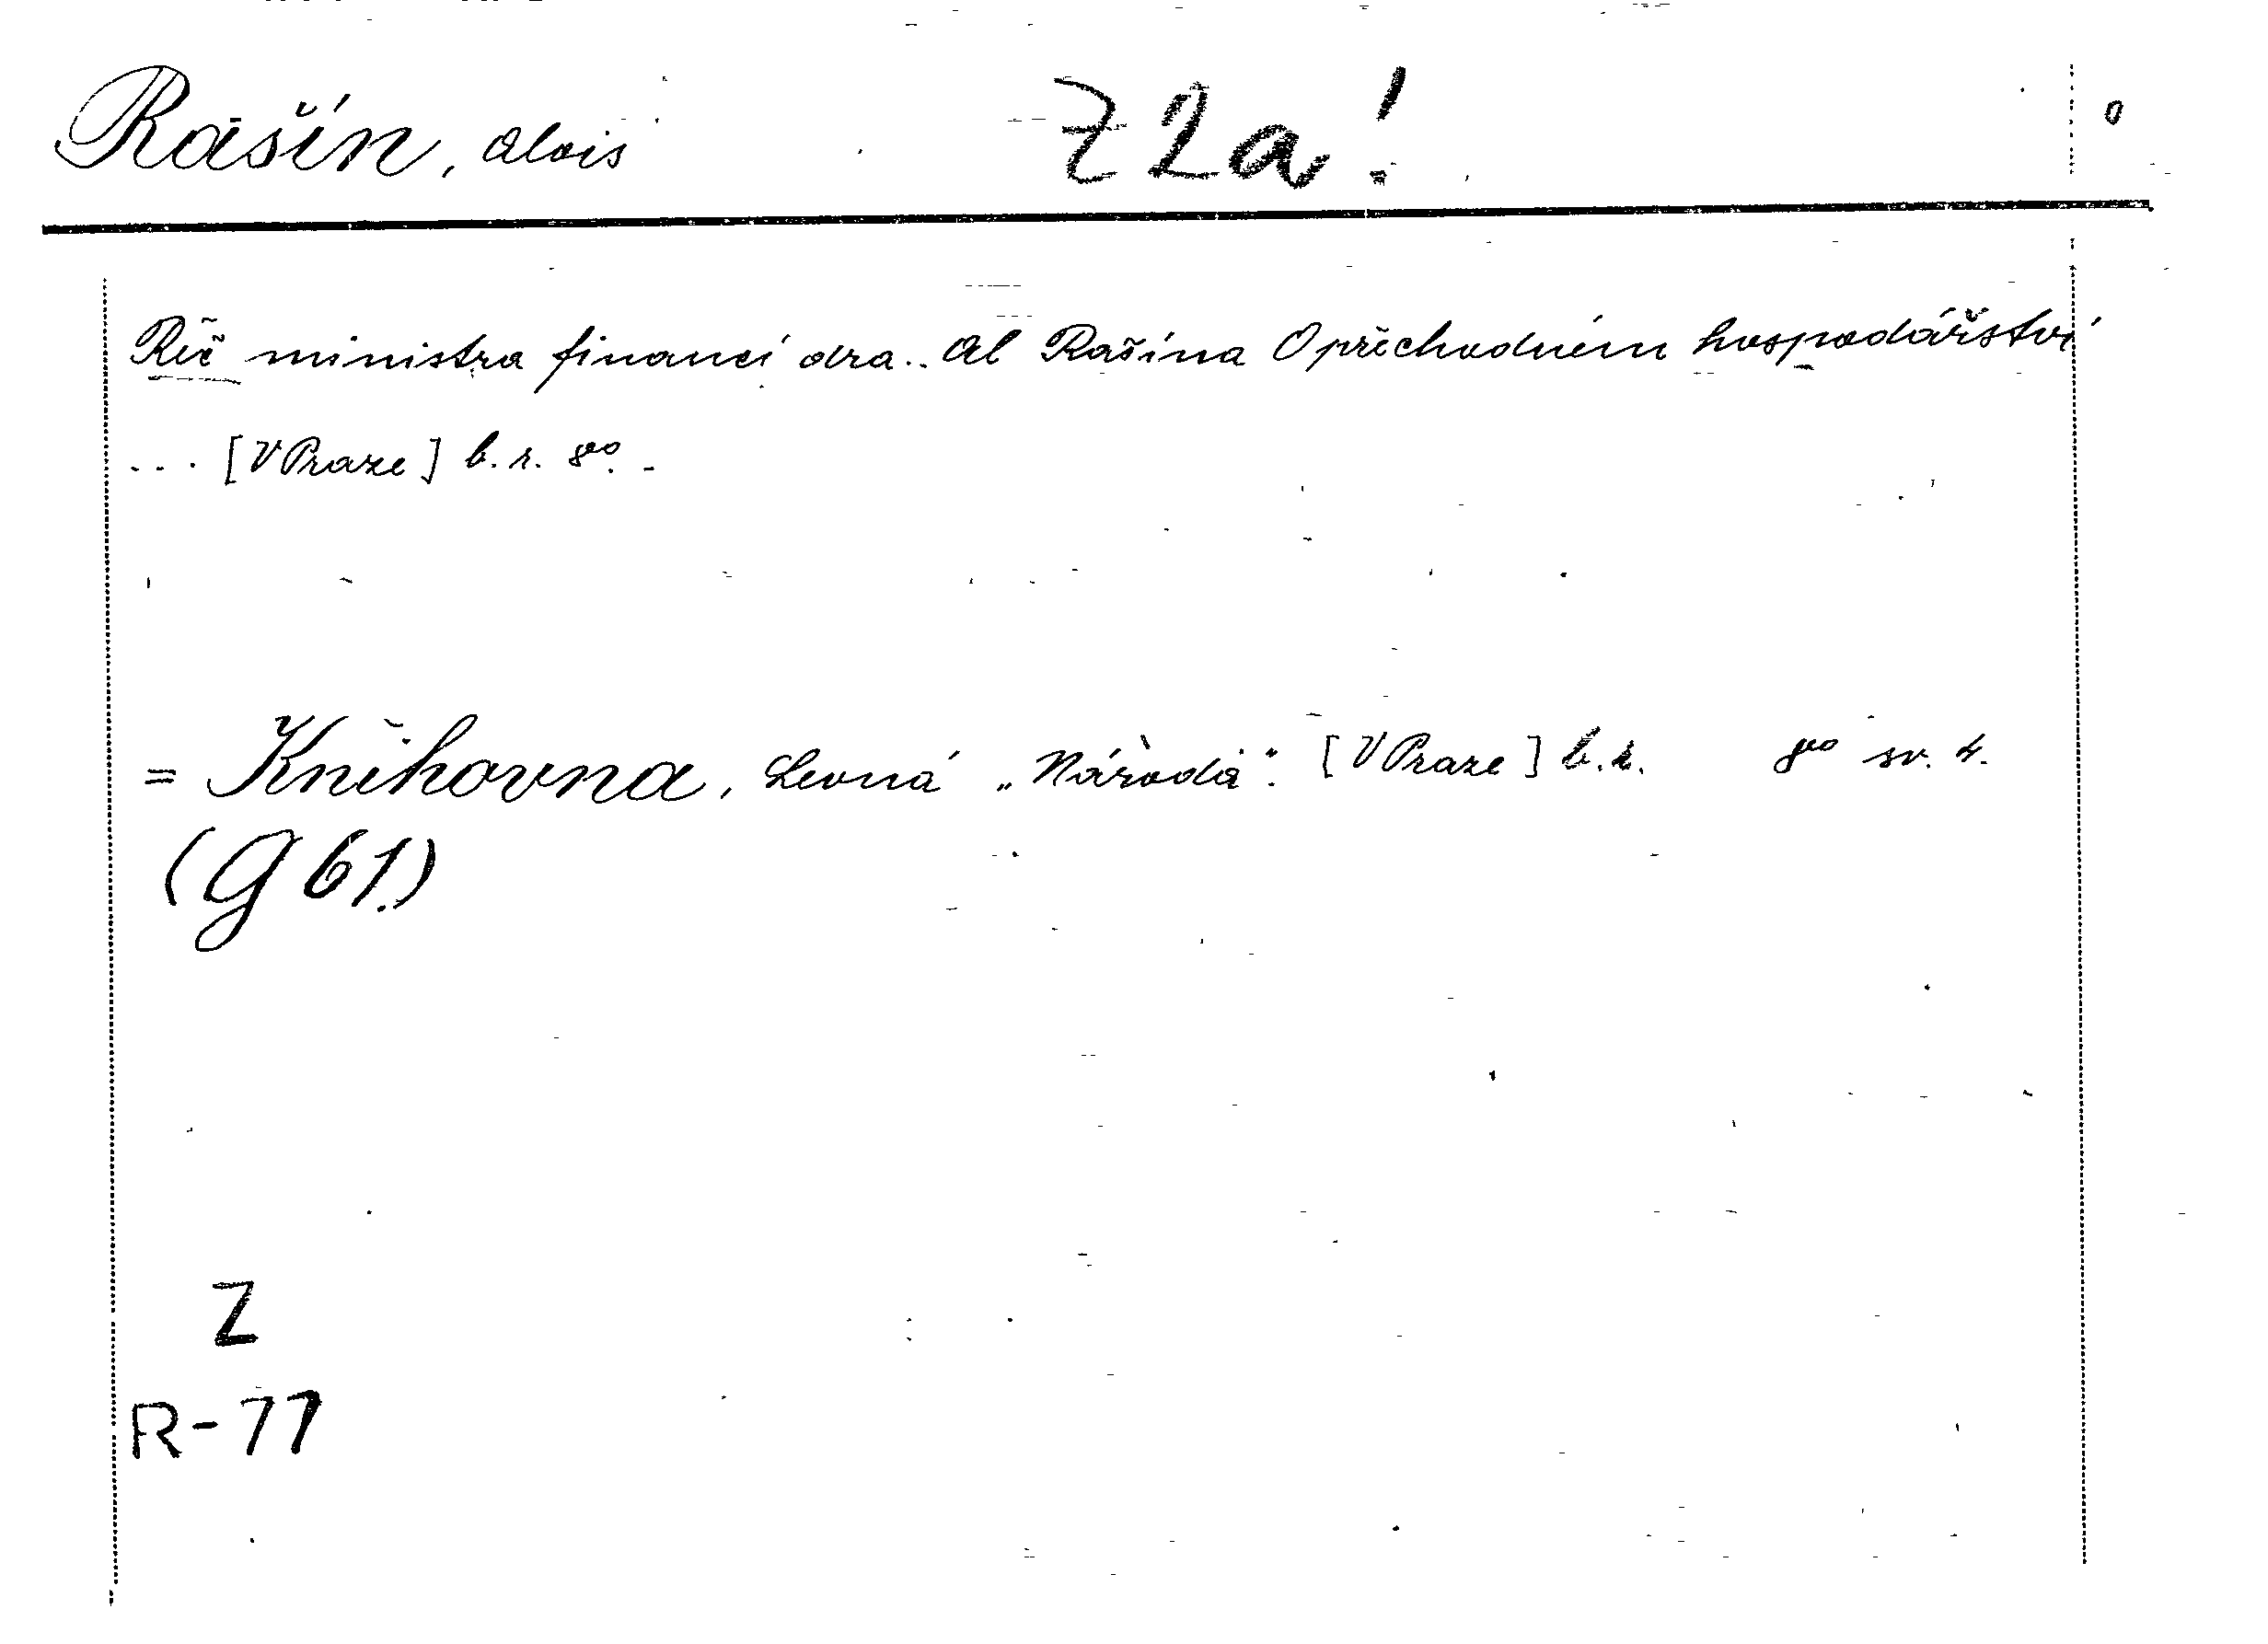 Rašín, Alois Z2a!
Řeč ministra financí dra. Al Rašína O přechodném hospodářství
... [V Praze] b. r. 8º. -
= Knihovna, Levná „Národa“. [V Praze] b. r. 8º sv. 4.
(G 61.)
Z
R-77